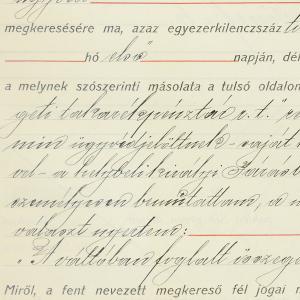 megkeresésére ma, azaz egyezerkilencszáz
hó első napján, dél
a melynek szószerinti másolata a tulsó oldalon
geti takarékpénztár r. t."
min ügyvédjelöltnek - saját
vel - a helybeli királyi Járás
személyesen bemutattam, a
választ nyertem:
„A váltóban foglalt összeg
Miről, a fent nevezett megkereső fél jogai